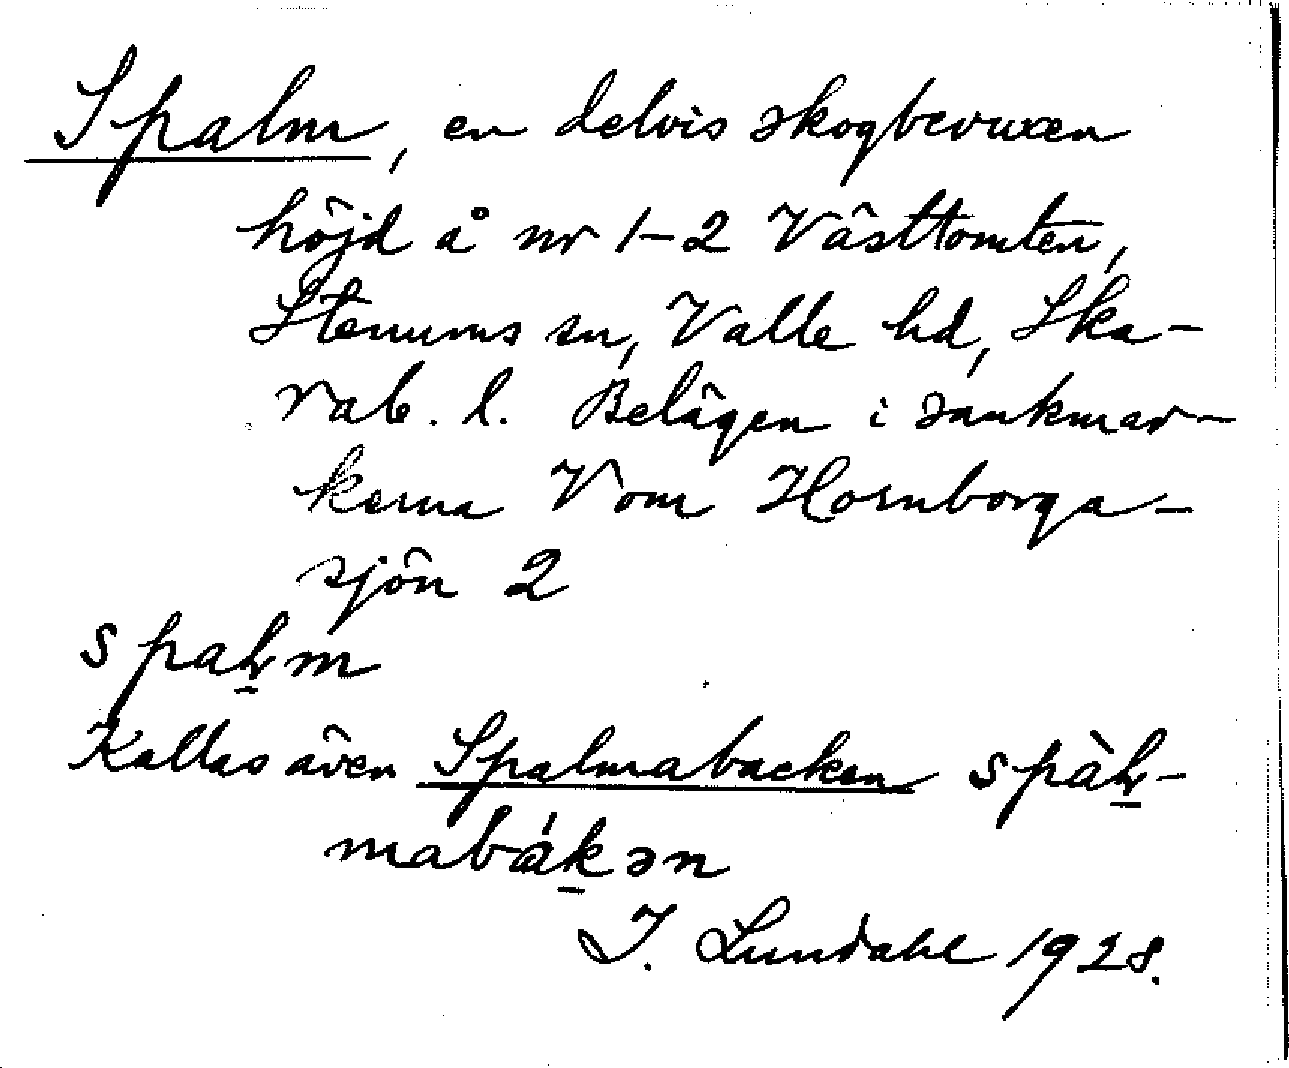 Spalm, en delvis skogbevuxen
höjd å nr 1-2 Västtomten,
Stenums sn, Valle hd, Ska-
rab. l. Belägen i sankmar-
kerna V om Hornborga-
sjön 2
spaḻm
Kallas även Spalmabacken spàḻ-
mabáḵən
I. Lundahl 1928.